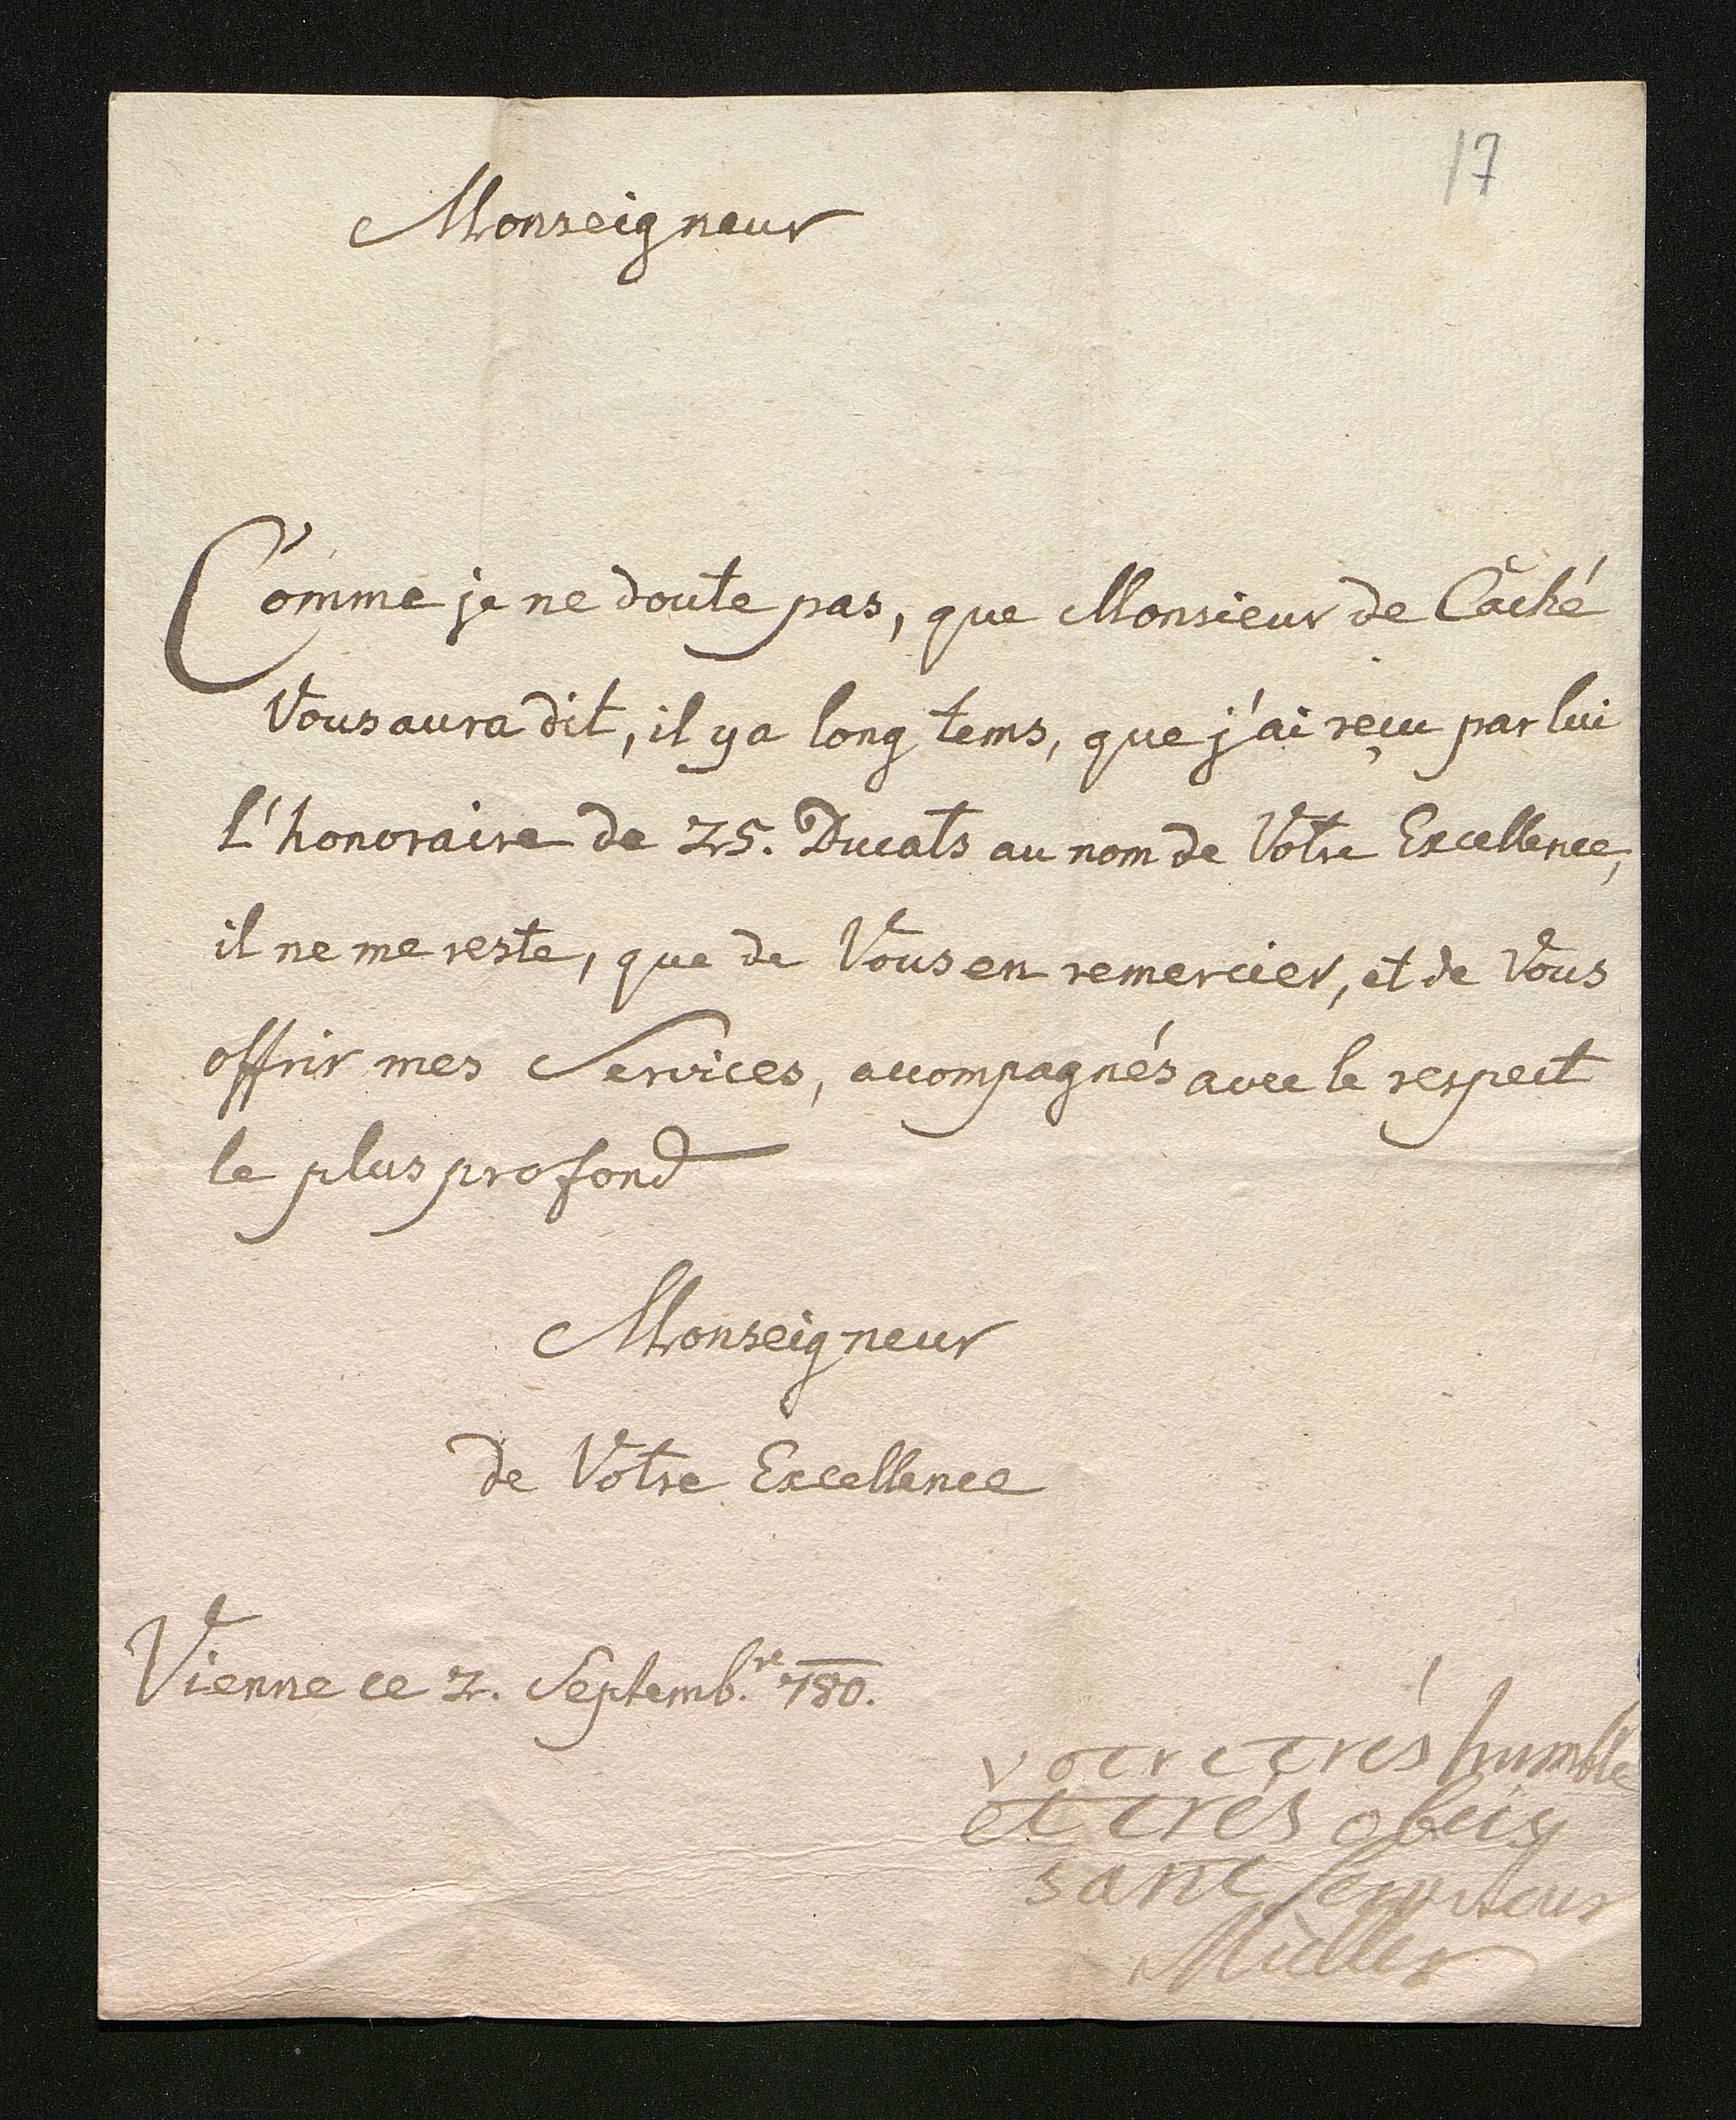 17
Monseigneur
Comme je ne doute pas, que Monsieur de Caché
Vous aura dit, il y a long tems, que j'ai reçu par lui
l'honoraire de 25. Ducats au nom de Votre Excellence,
il ne me reste, que de Vous en remercier, et de Vous
offrir mes Services, accompagnés avec le respect
le plus profond
Monseigneur
de Votre Excellence
Vienne ce 2. Septemb.re 780.
votre trés humble
et trés obeis
sant serviteur
Müller